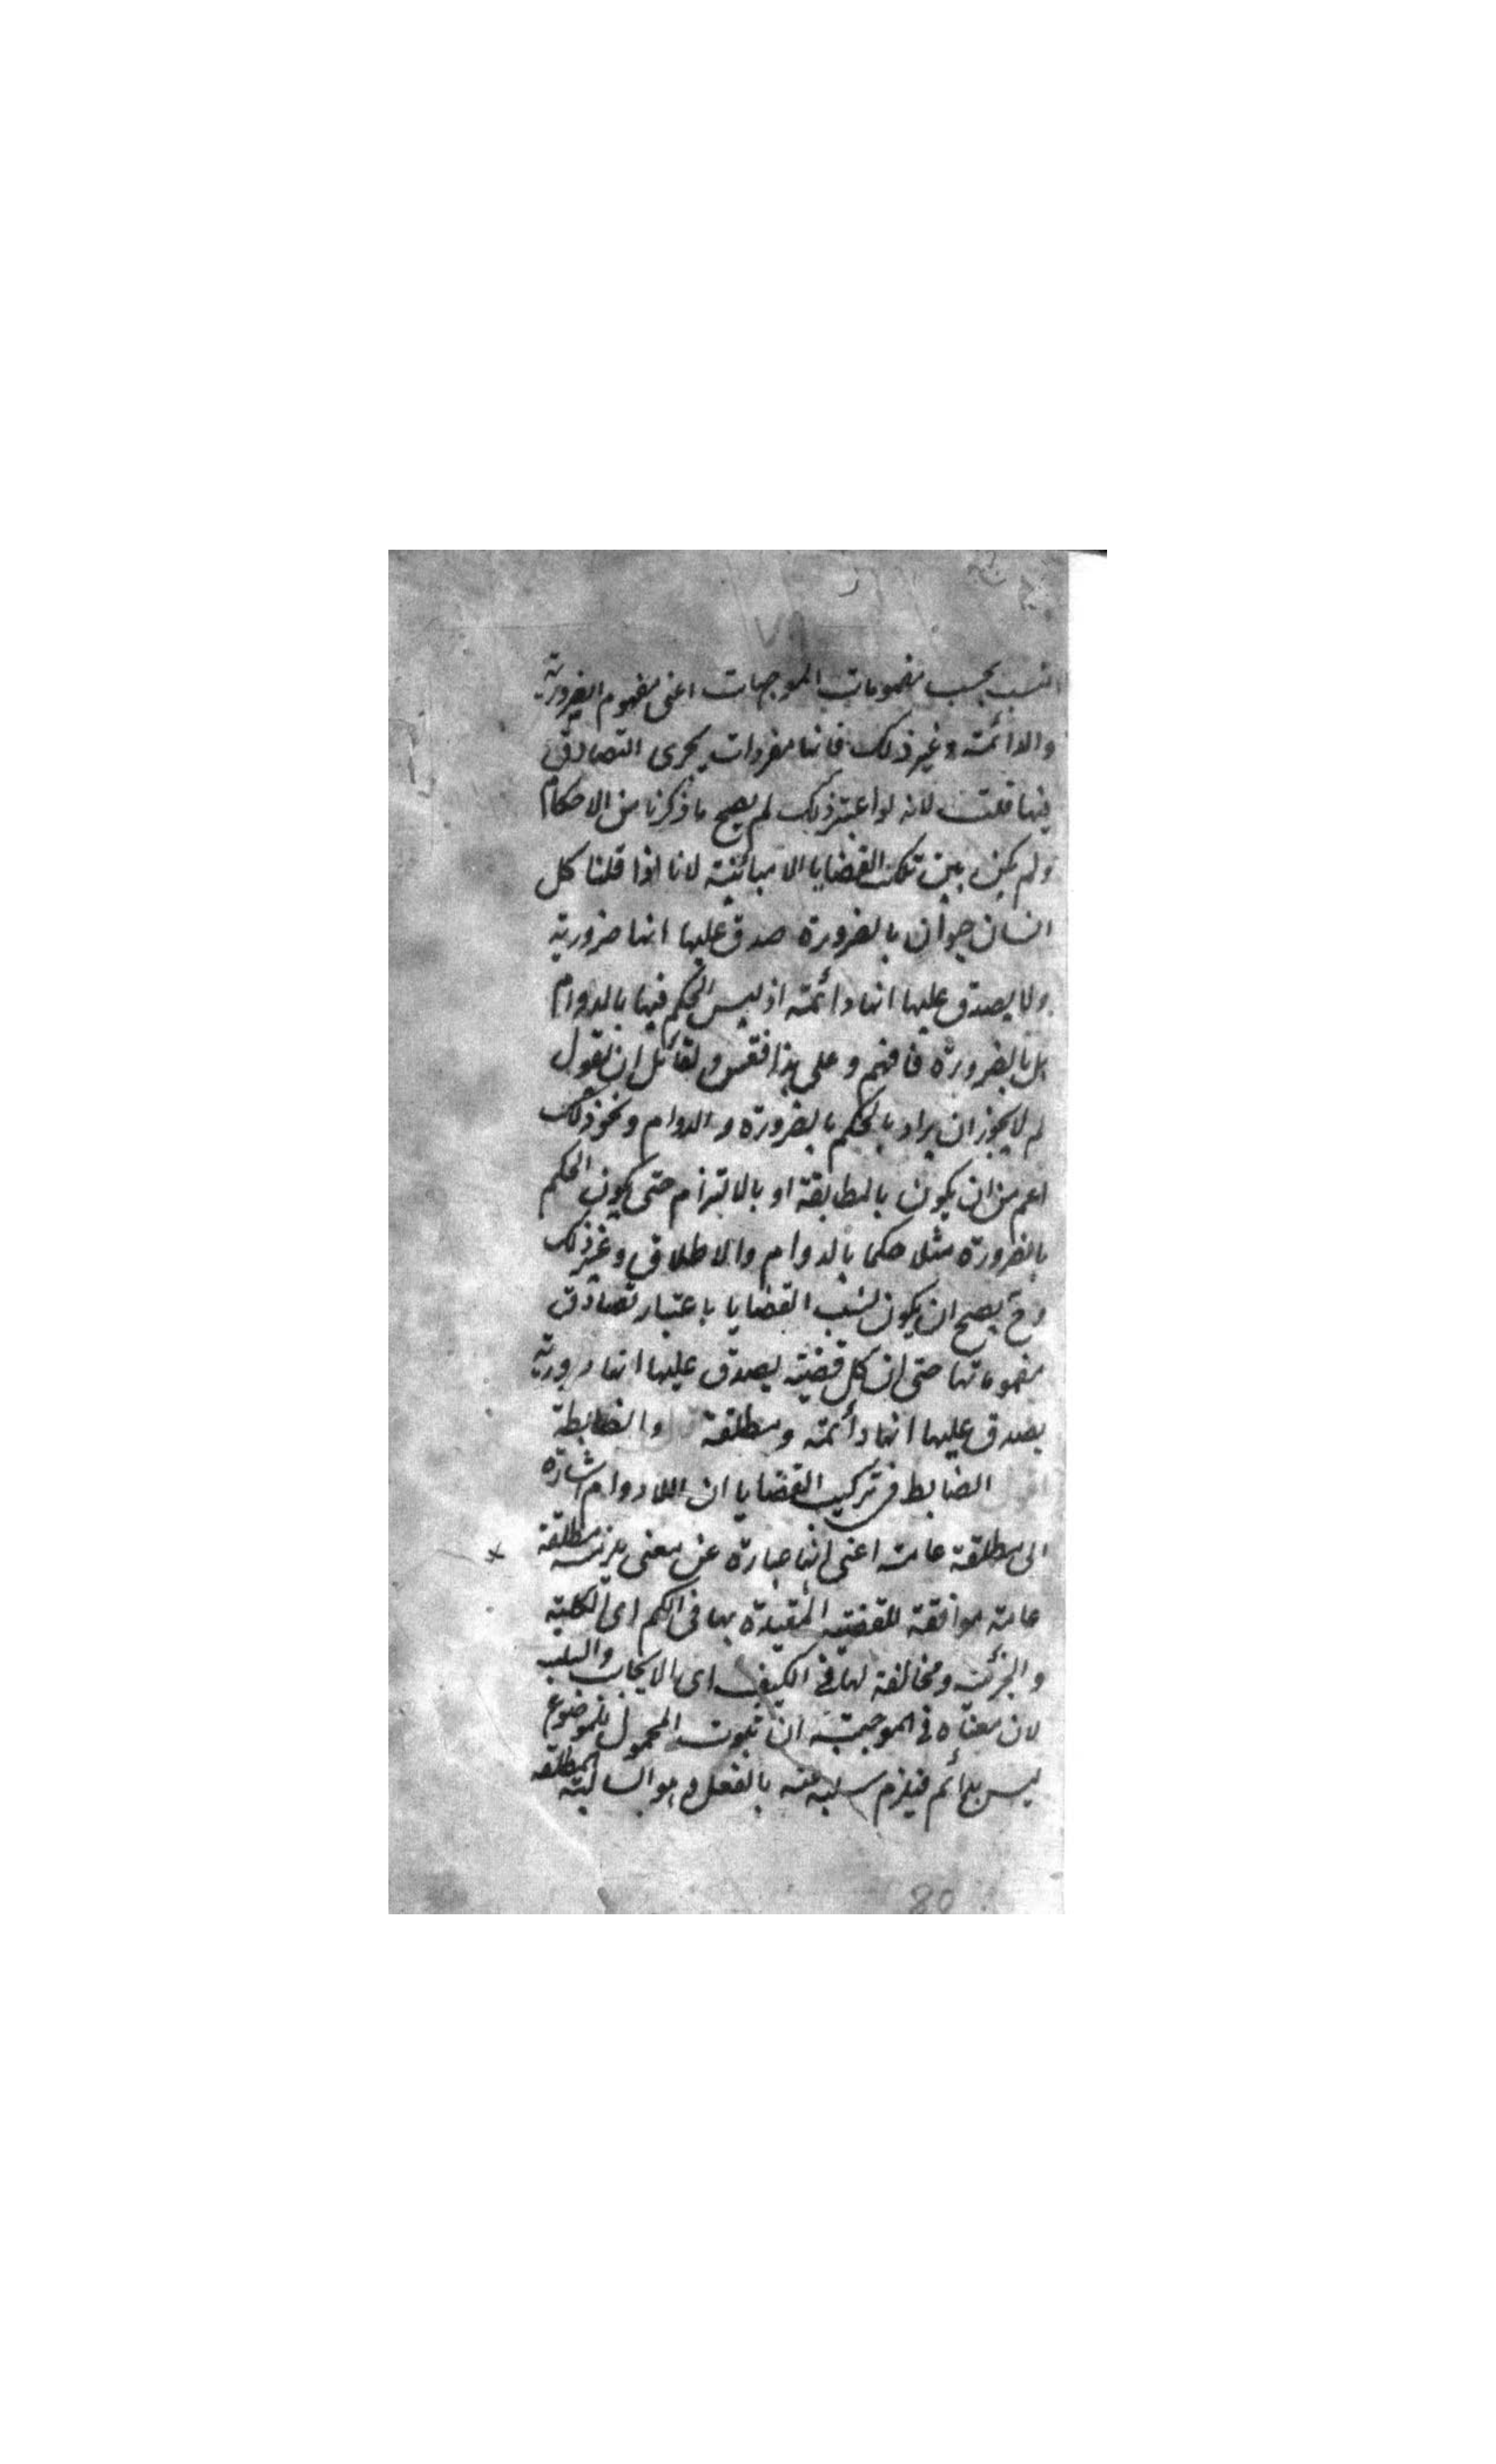 ٧٩
النسب بحسب مفهومات الموجهات اعنى مفهوم الضرورية
والدائمة وغير ذلك فانها مفردات يجرى التصادق
بينها قلت لانه لو اعتبر ذلك لم يصح ما ذكرنا من الاحكام
ولم يكن بين تلك القضايا الا مباينة لانا اذا قلنا كل
انسان حيوان بالضرورة صدق عليها انها ضرورية
ولا يصدق عليها انها دائمة اذ ليس الحكم فيها بالدوام
بل بالضرورة فافهم وعلى هذا فقس ولقائل ان يقول
لم لا يجوز ان يراد بالحكم بالضرورة والدوام ونحو ذلك
اعم من ان يكون بالمطابقة او بالالتزام حتى يكون الحكم
بالضرورة مثلا حكما بالدوام والاطلاق وغير ذلك
وح يصح ان يكون نسب القضايا باعتبار تصادق
مفهوماتها حتى ان كل قضية يصدق عليها انها ضرورية
يصدق عليها انها دائمة ومطلقة قال والضابطة
اقول الضابط فى تركيب القضايا ان اللادوام اشارة
الى مطلقة عامة اعنى انها عبارة عن معنى يلزمه مطلقة
عامة موافقة للقضية المقيدة بها فى الكم اى الكلية
والجزئية ومخالفة لها فى الكيف اى الايجاب والسلب
لان معناه فى الموجبة ان ثبوت المحمول للموضوع
ليس بدائم فيلزم سلبه عنه بالفعل وهو السالبة المطلقة
80